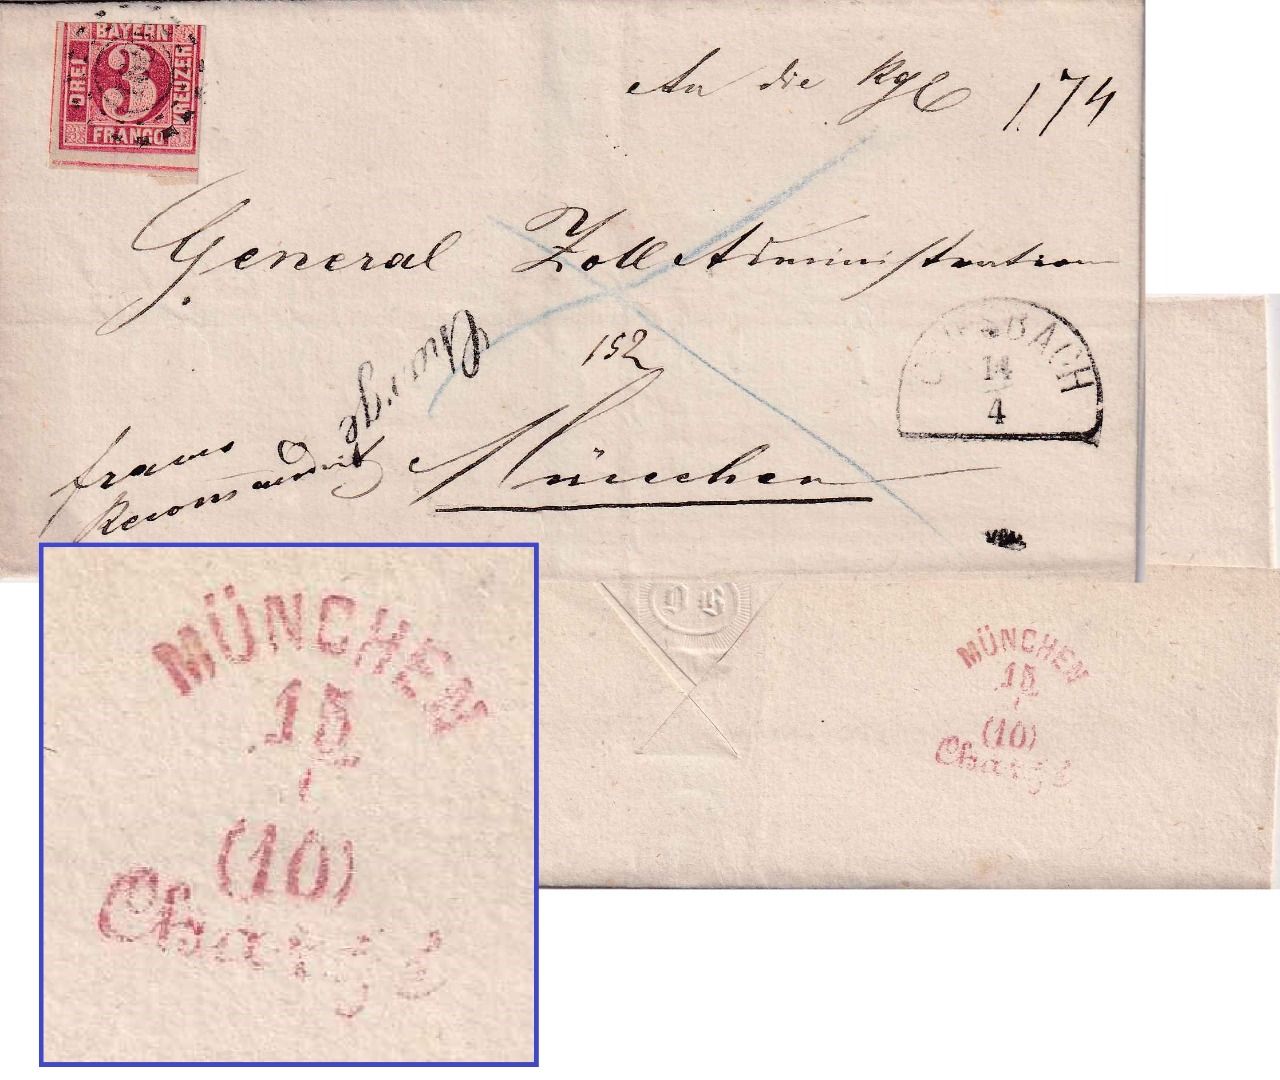 BAYERN
DREI
3
KREUZER
FRANCO
An die Kgl
174
General Zoll Administration
Chargé
152
franco
Recommandirt
München
14
4
MÜNCHEN
15
(10)
Chargé
MÜNCHEN
15
(10)
Chargé